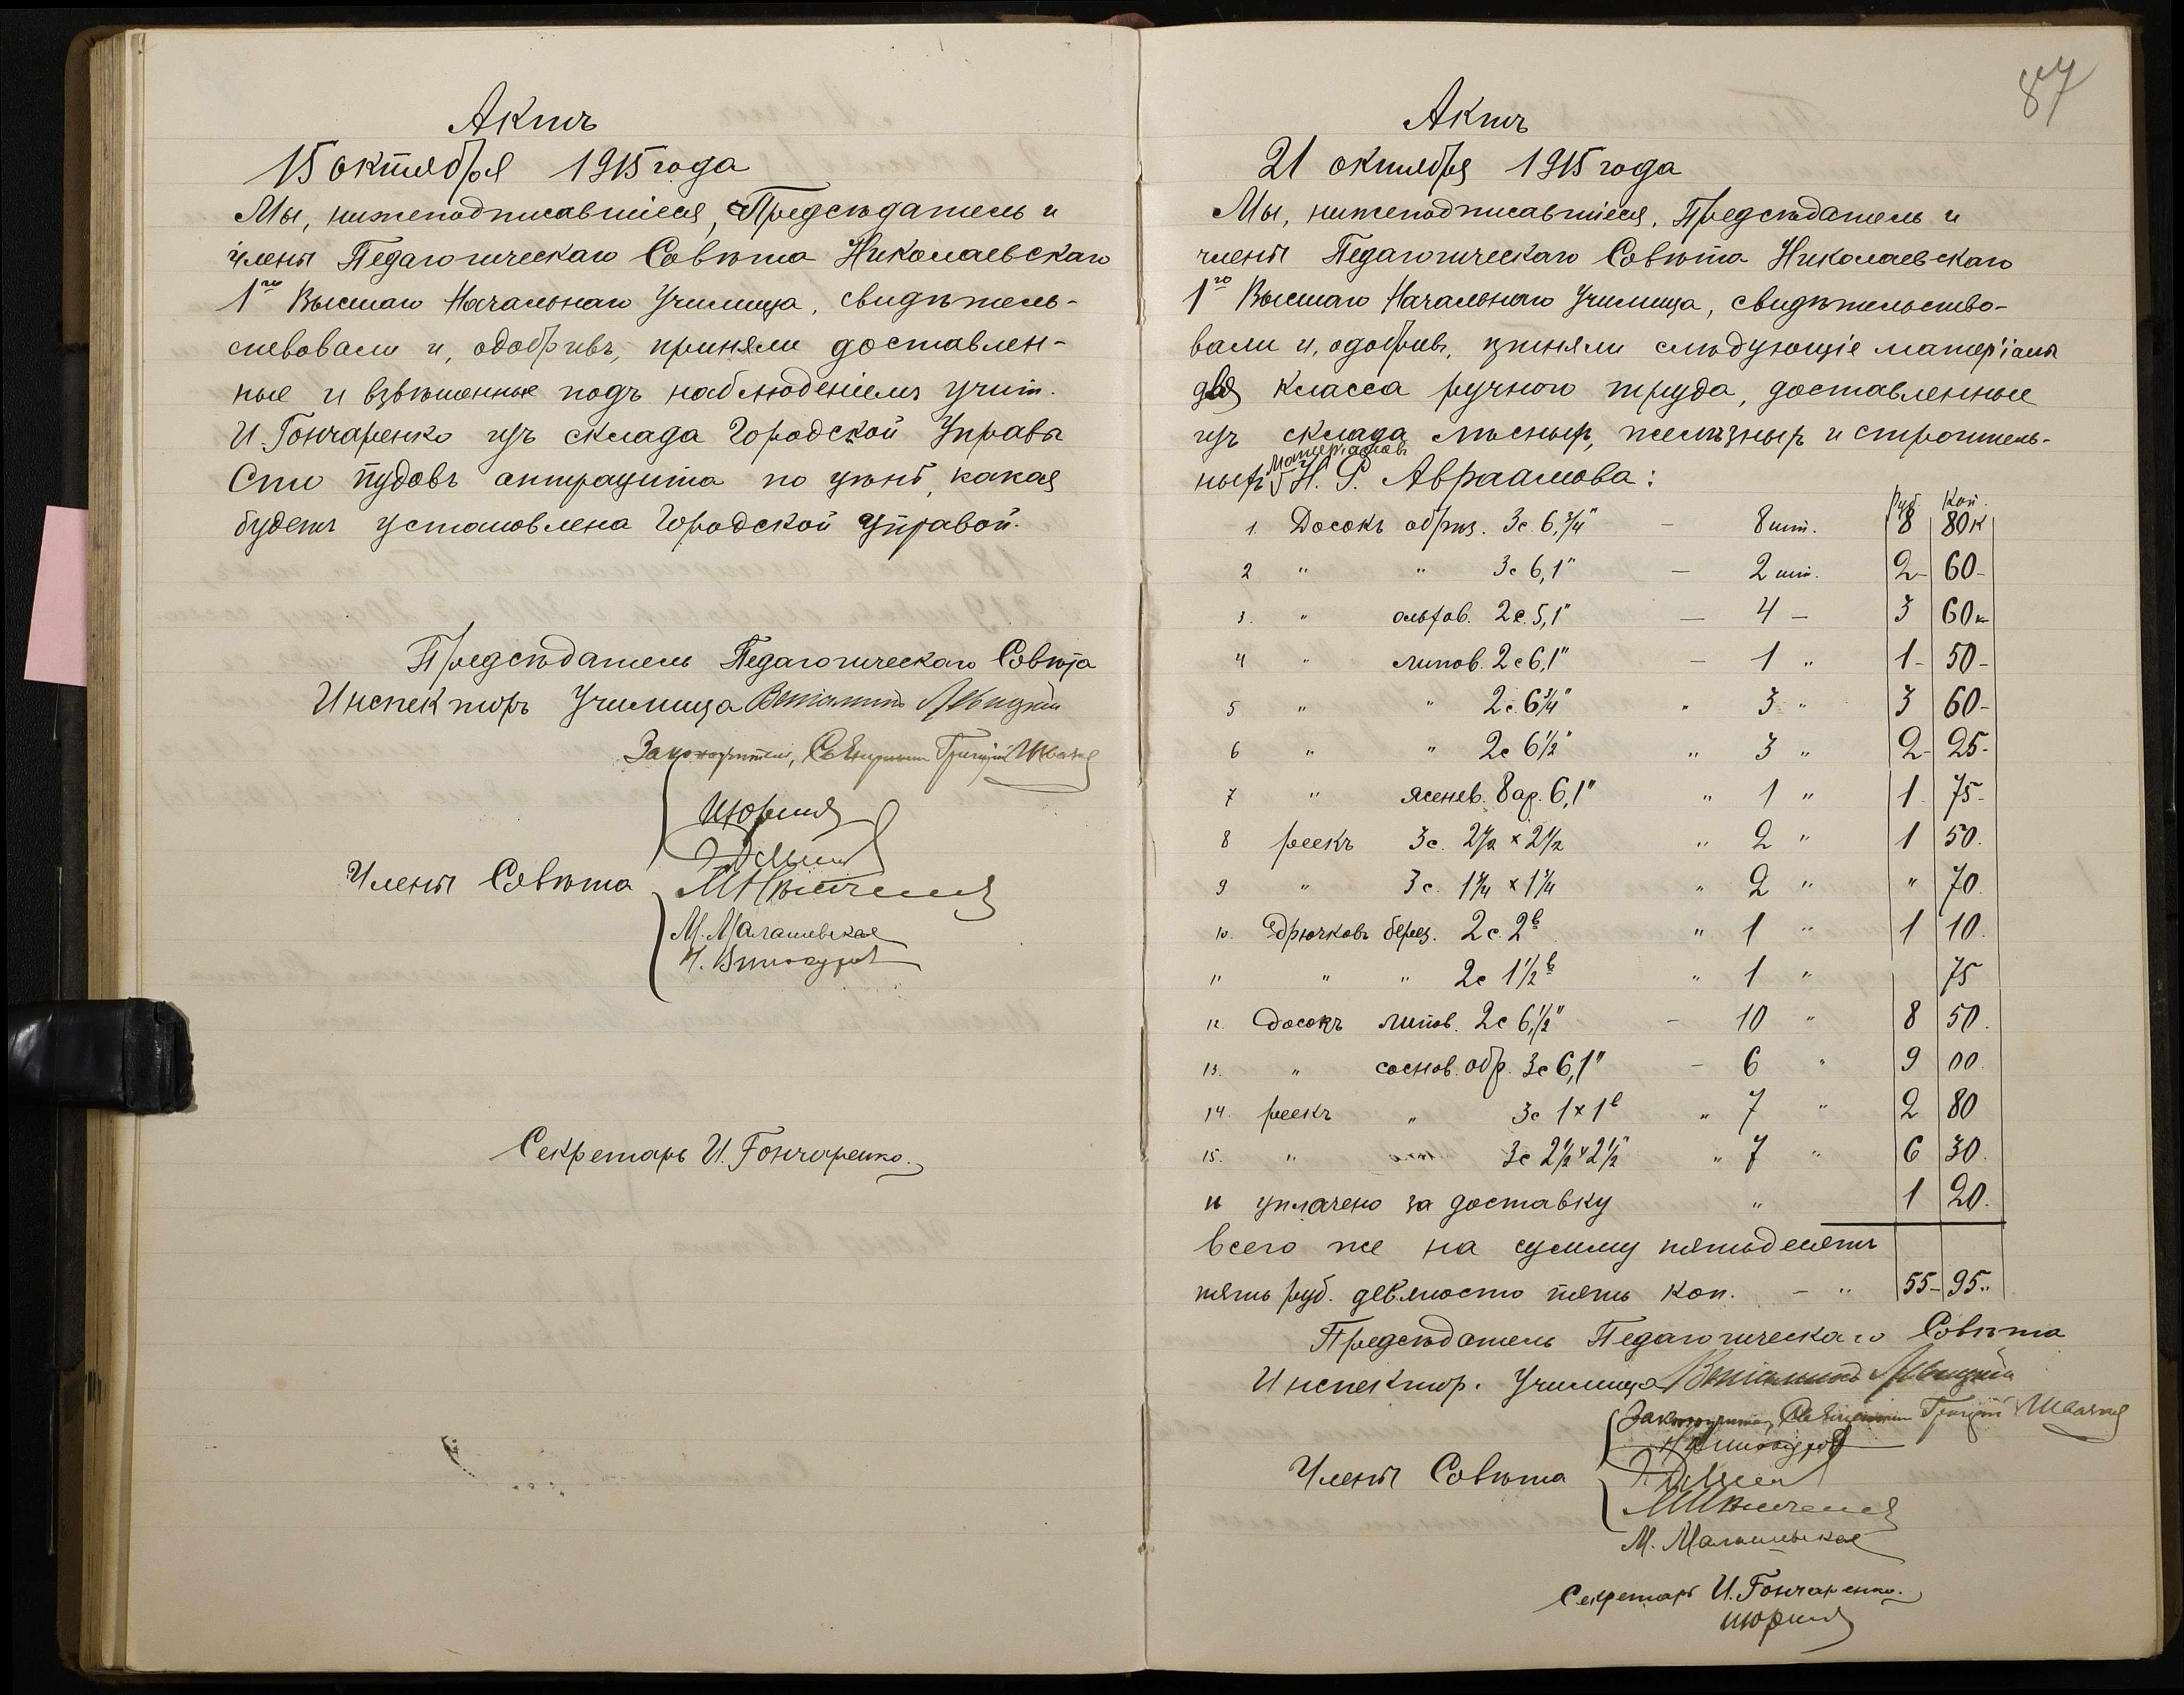 Актъ
15 октября 1915 года
Мы, нижеподписавшіеся, Предсѣдатель и
члены Педагогическаго Совѣта Николаевскаго
1го Высшаго Начальнаго Училища, свидѣтель-
ствовали и, одобривъ, приняли доставлен-
ные и взвѣшенные подъ наблюденіемъ учит.
И. Гончаренко изъ склада Городской Управы
Сто пудовъ антрацита по цѣнѣ, какая
будетъ установлена Городской Управой.
Предсѣдатель Педагогическаго Совѣта
Инспекторъ Училища Веніаминъ Левицкій
Законоучитель, Священникъ Григорій
Члены Совѣта
М. Малашевская
Н. Винокуровъ
Секретарь И. Гончаренко.
87
Актъ
21 октября 1915 года
Мы, нижеподписавшіеся, Предсѣдатель и
члены Педагогическаго Совѣта Николаевскаго
1го Высшаго Начальнаго Училища, свидѣтельство-
вали и, одобривъ, приняли слѣдующіе матеріалы
для класса ручного труда, доставленные
изъ склада лѣсныхъ, желѣзныхъ и строитель-
ныхъ матеріаловъ Н. Р. Авраамова:
Руб. Коп.
1. Досокъ обрѣз. 3с. 6,3/4" — 8 шт. 8 80к
2 " " 3с 6,1" — 2 шт. 2- 60-
3. " ольхов. 2с. 5,1" — 4 — 3 60к
4 " липов. 2с 6,1" — 1 " 1- 50-
5 " " 2с. 6 3/4" " 3 " 3 60-
6 " " 2с 6 1/2" " 3 " 2- 25-
7 " ясенев. 8 ар. 6,1" " 1 " 1. 75-
8 реекъ 3с. 2 1/2 × 2 1/2 " 2 " 1 50.
9 " 3с. 1 3/4 × 1 3/4 " 2 " " 70.
10. Дрючковъ берез. 2с. 2в " 1 " 1 10.
11 " " 2с 1 1/2в " 1 " 75
12. Досокъ липов. 2с 6,1/2" — 10 " 8 50.
13. " соснов. обр. 3с 6,1" — 6 " 9 00
14. реекъ " 3с 1×1в " 7 " 2 80
15. " 3с 2 1/2 × 2 1/2" " 7 " 6 30.
и уплачено за доставку " 1 20.
всего же на сумму пятьдесятъ
пять руб. девяносто пять коп. — " 55- 95"
Предсѣдатель Педагогическаго Совѣта
Инспектор. Училища Веніаминъ Левицкій
Законоучитель, Священникъ Григорій
Н. Винокуровъ
Члены Совѣта
М. Малашевская
Секретарь И. Гончаренко.